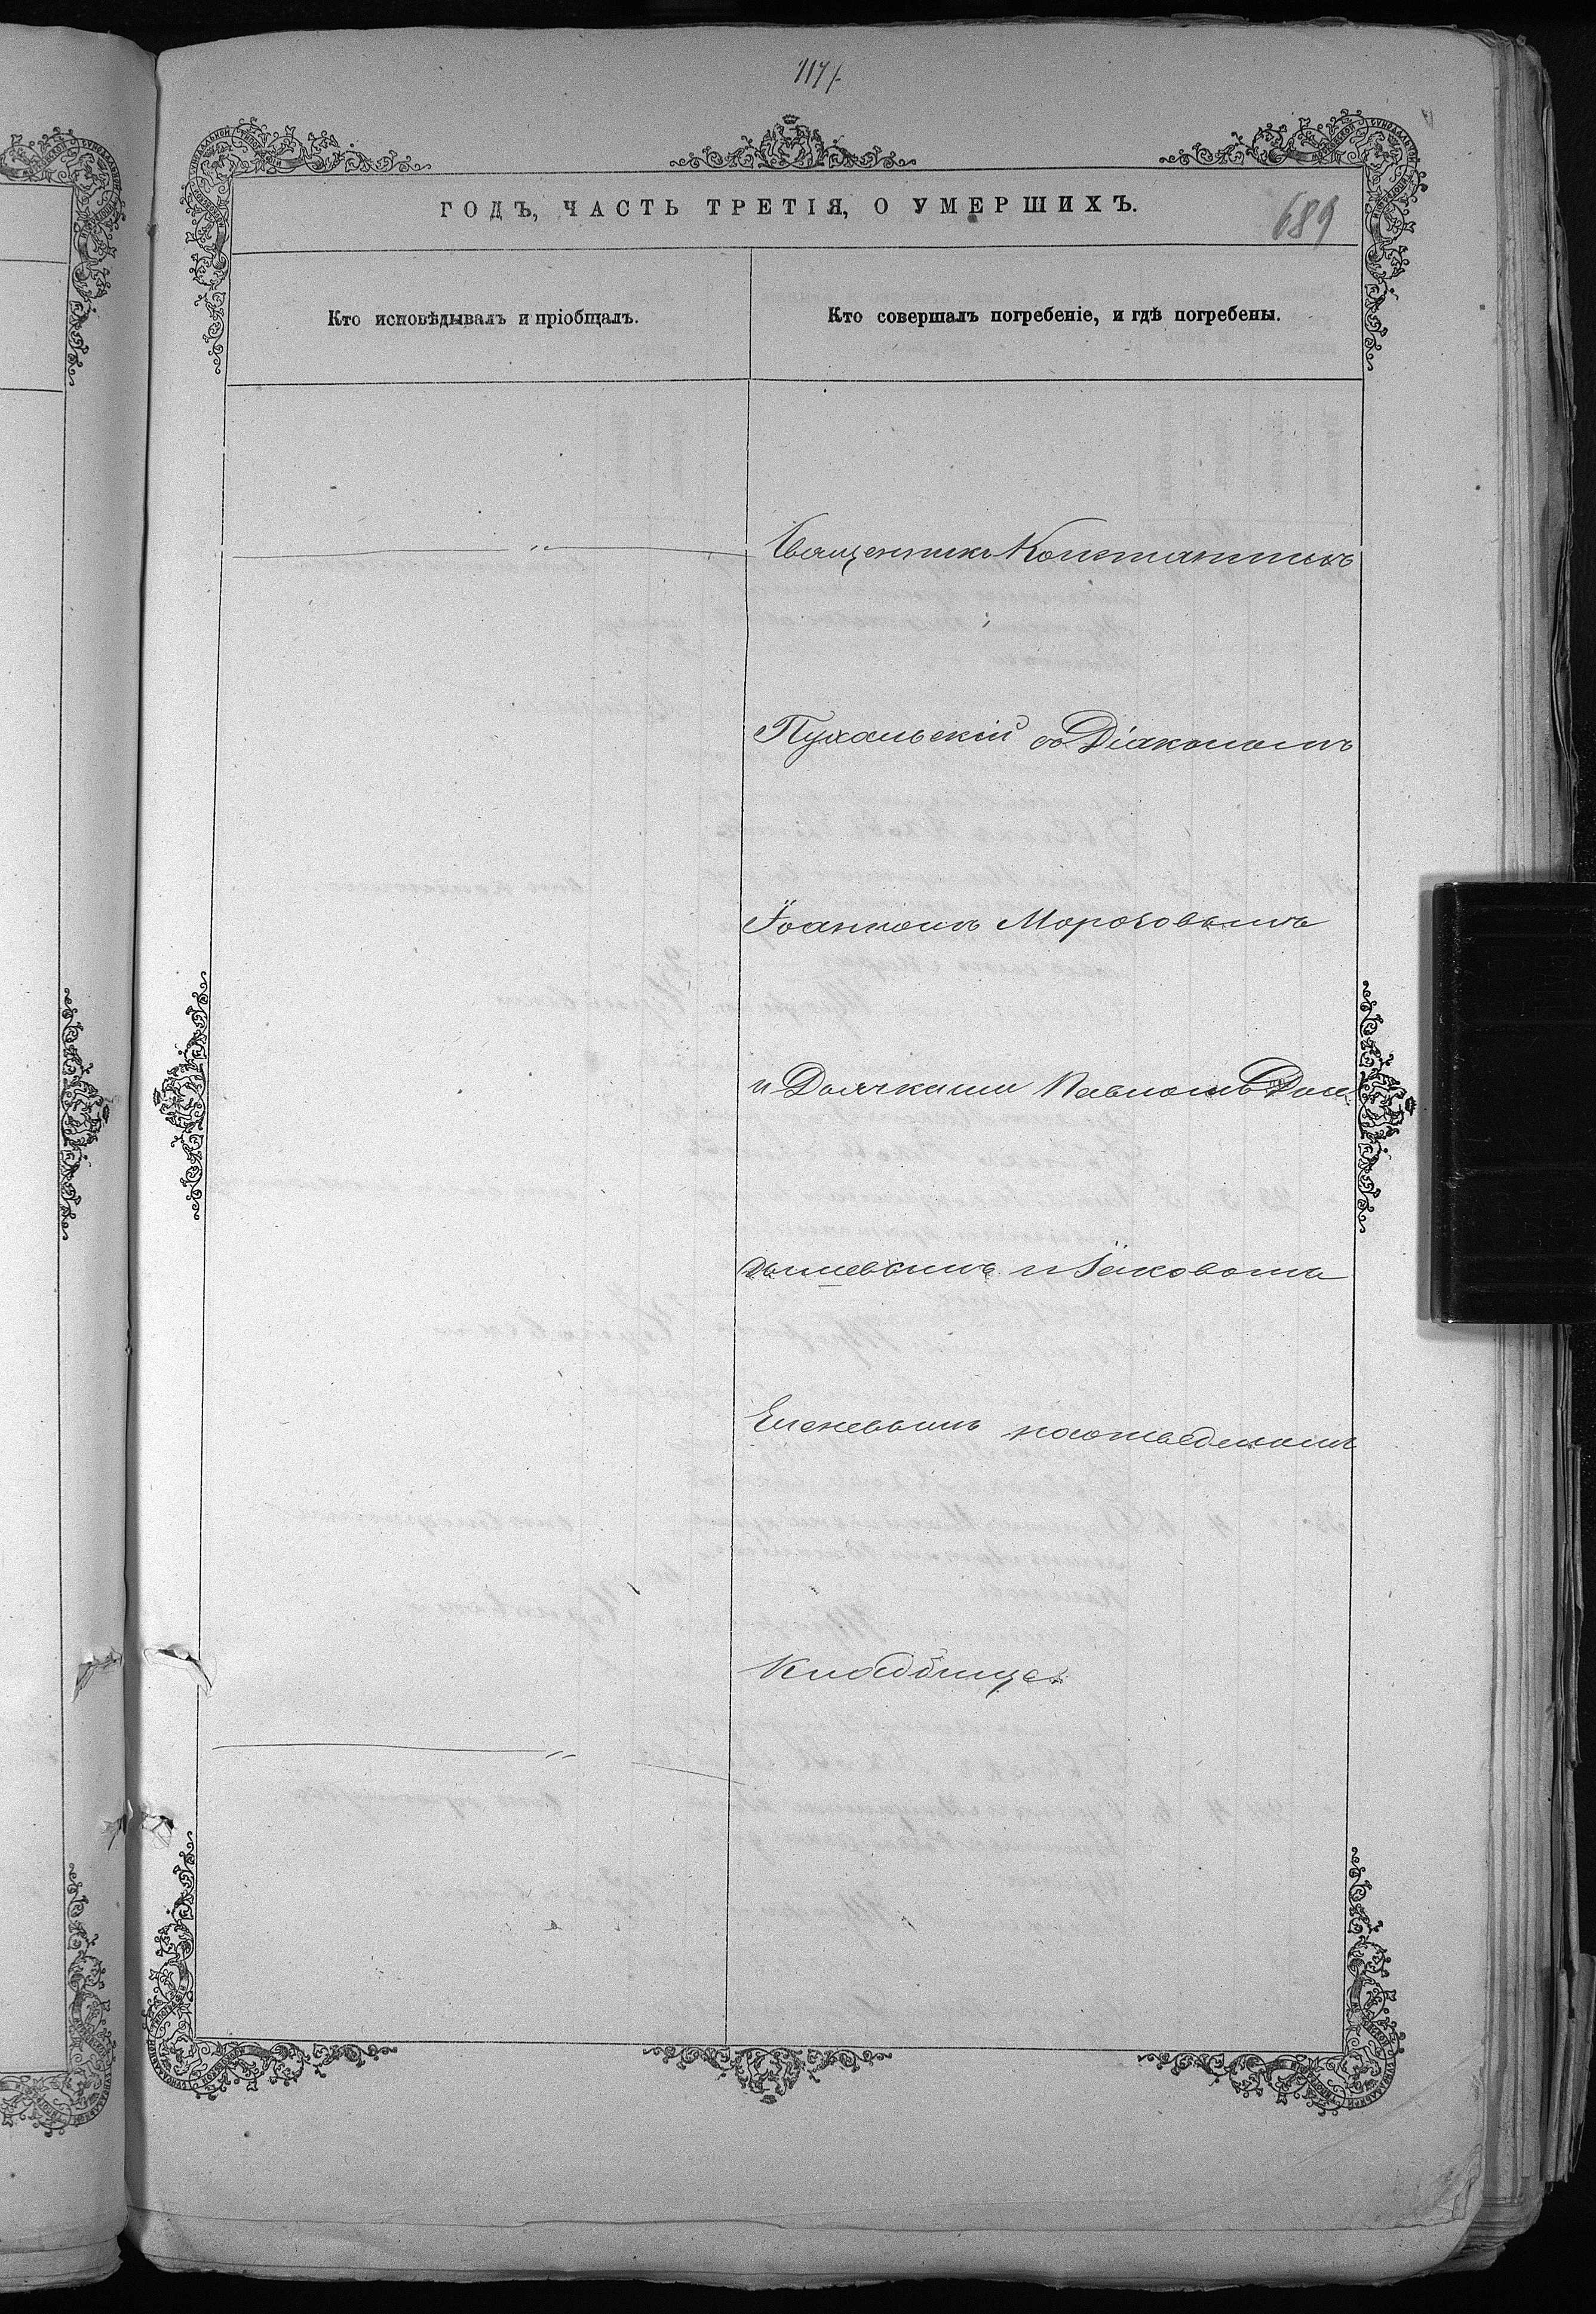 117/.
ГОДЪ, ЧАСТЬ ТРЕТІЯ, О УМЕРШИХЪ.
689
Кто исповѣдывалъ и пріобщалъ.
Кто совершалъ погребеніе, и гдѣ погребены.
Священникъ Константинъ
Пухальскій съ Діакономъ
Іоанномъ Морозовымъ
и Дьячками Павломъ
и Іаковомъ
Еленевымъ
Кладбищѣ.